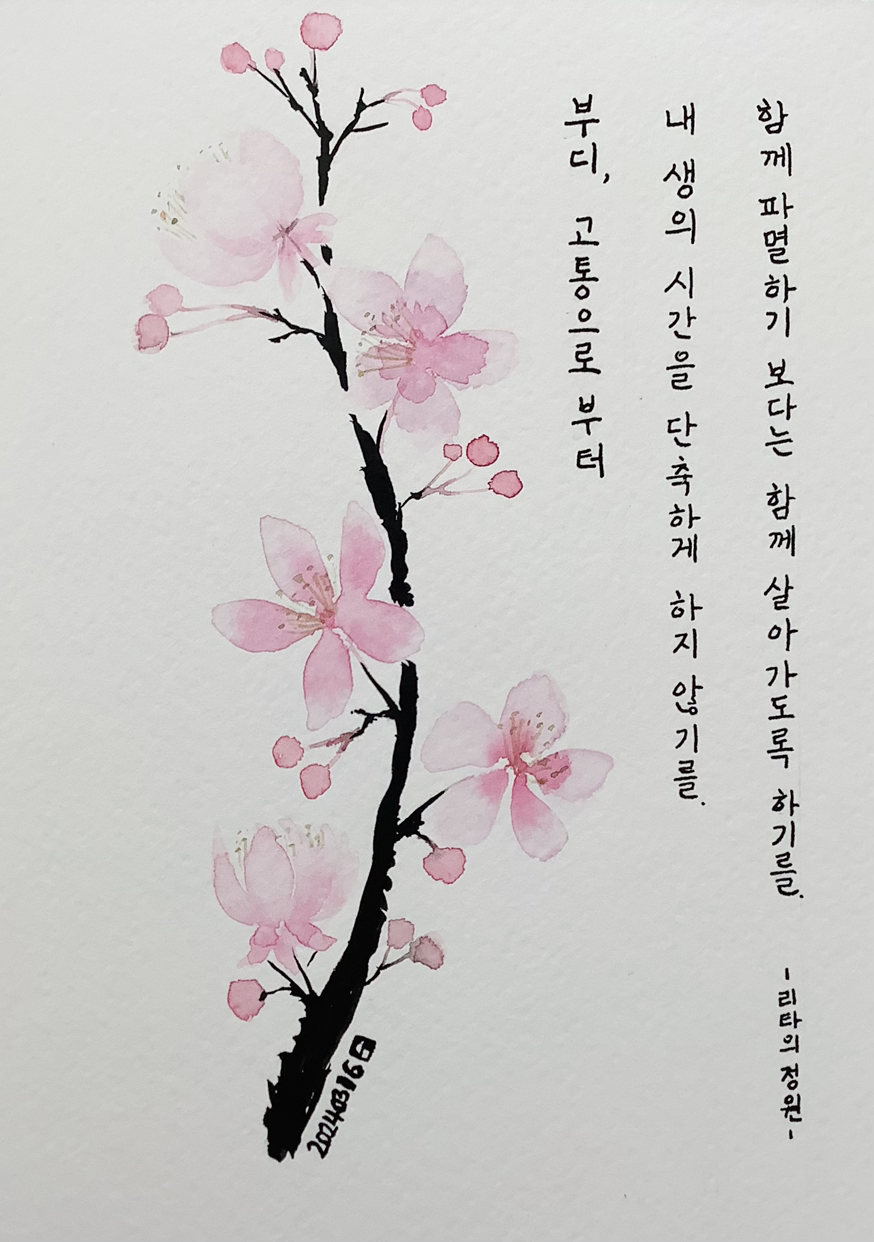 부디, 고통으로 부터
내 생의 시간을 단축하게 하지 않기를.
함께 파멸하기 보다는 함께 살아가도록 하기를.
-리타의정원-
20240316